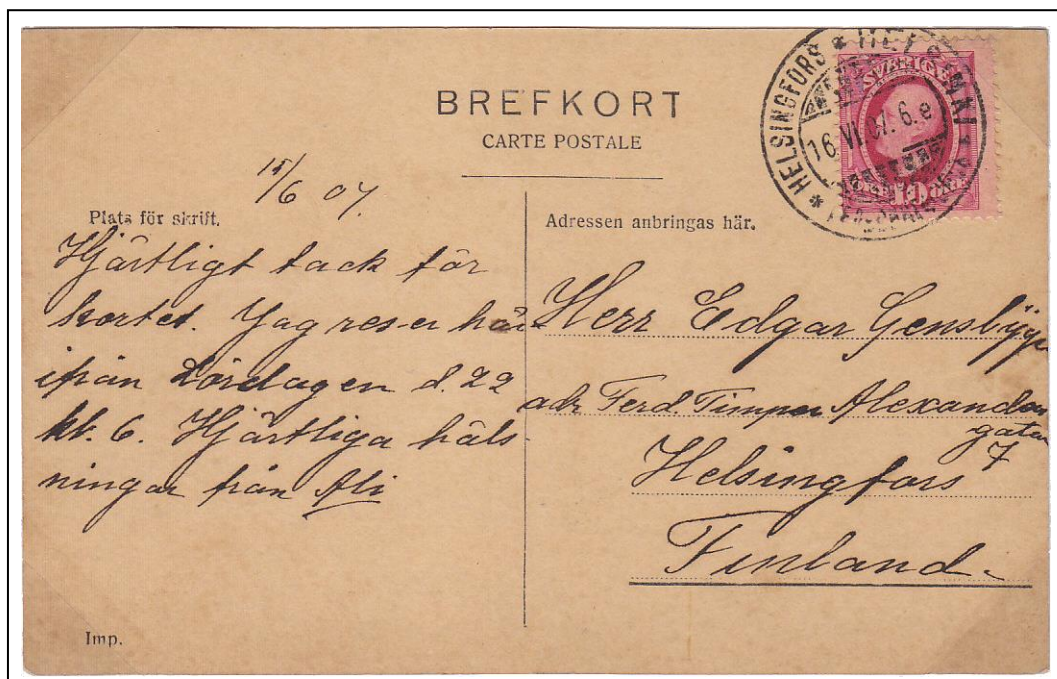 BREFKORT
CARTE POSTALE
HELSINGFORS * HELSINKI
16.VI.07. 6.e
SVERIGE
15/6 07.
Plats för skrift.
Hjärtligt tack för
kortet. Jag reser här
ifrån Lördagen d. 22
kl. 6. Hjärtliga häls
ningar från
Adressen anbringas här.
Herr Edgar
adr. Ferd. Alexanders
gatan
7
Helsingfors
Finland.
Imp.